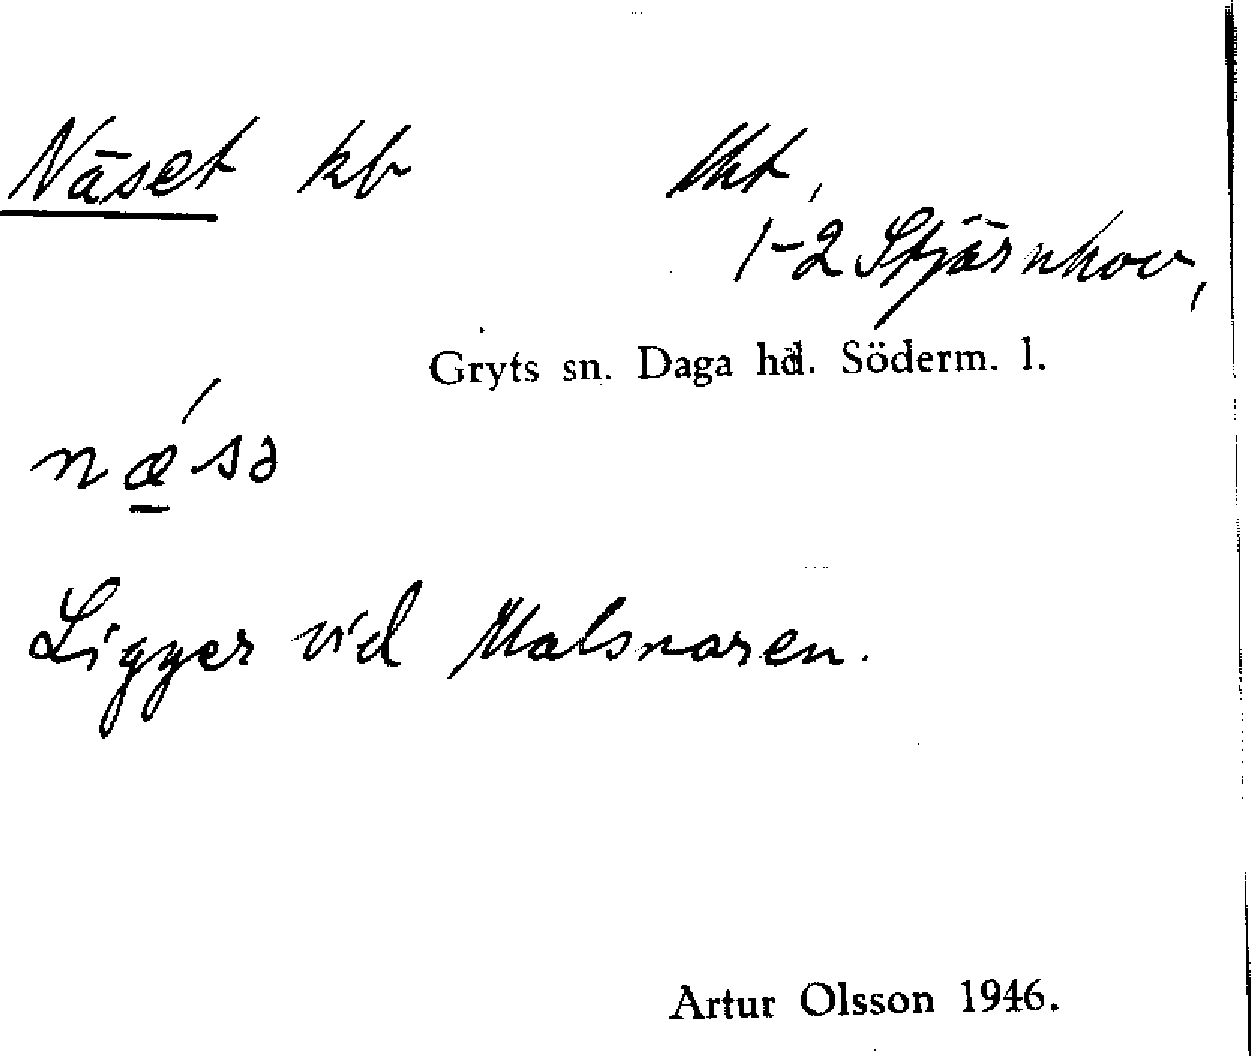 Näset kb Ukt,
1-2 Stjärnhov,
Gryts sn. Daga hd. Söderm. l.
næ´sə
Ligger vid Malsnaren.
Artur Olsson 1946.